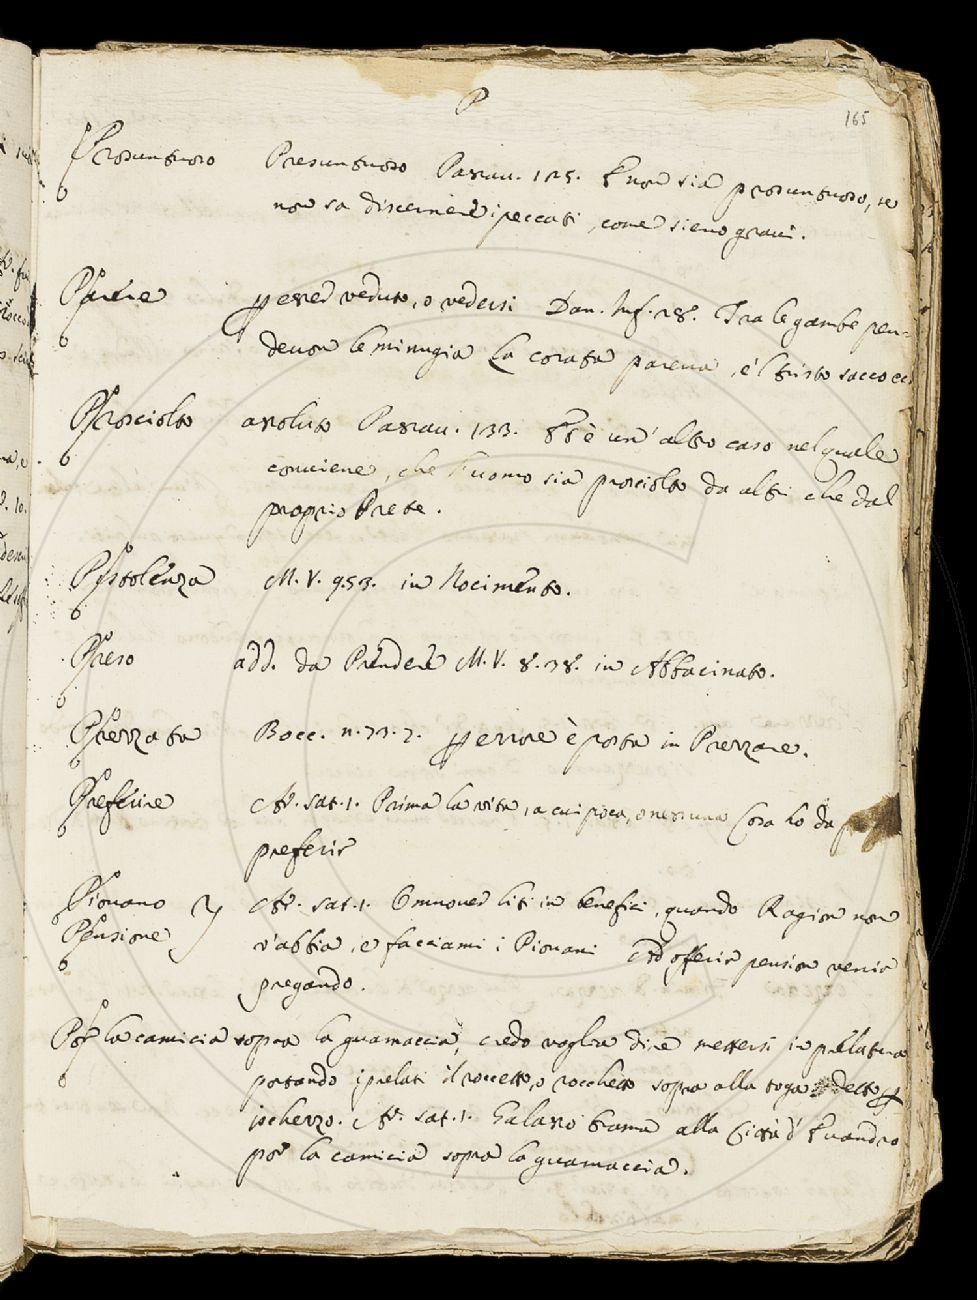 P
165
Prosuntuoso Presuntuoso Passau. 125. E non sia prosuntuoso, se
non sa discernere i peccati, come sieno gravi.
Parere esser veduto, o vedersi Dan. Inf. 28. Tra le gambe pen-
devon le minugia La corata pareva, e'l tristo sacco ec
Prosciolto assoluto Passau. 133. è un' altro caso nel quale
conviene, che l'uomo sia prosciolto da altri che dal
proprio Prete.
Pistolenza M. V. 9.53. in Nocimento.
Preso add. da Prendere M. V. 8. 78. in Abbacinato.
Prezzata Bocc. n. 73. 7. errore è posta in Prezzare.
Preferire Ar. sat. 1. Prima la vita, a cui poca, o nessuna Cosa ho da
preferir
Piovano Ar. sat. 1. Ommover liti in benefici, quando Ragion non
Pensione v'abbia, e facciami i Piovani Ad offerir pension venir
pregando.
Por la camicia sopra la guarnaccia, credo voglia dire mettersi in prelatura
portando i prelati il roccetto, o rocchetto sopra alla toga detto
ischerzo. Ar. sat. 1. Galasso brama alla Città d' Evandro
por la camicia sopra la guarnaccia.